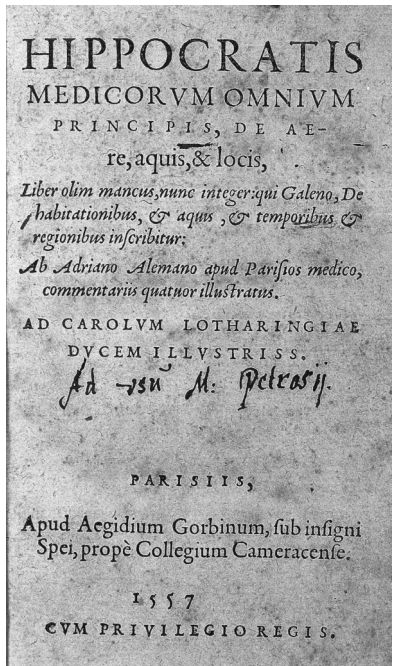 HIPPOCRATIS
MEDICORVM OMNIVM
PRINCIPIS, DE AE-
re, aquis, & locis,
Liber olim mancus, nunc integer: qui Galeno, De
habitationibus, & aquis, & temporibus &
regionibus inſcribitur:
Ab Adriano Alemano apud Pariſios medico,
commentariis quatuor illuſtratus.
AD CAROLVM LOTHARINGIAE
DVCEM ILLVSTRISS.
Ad vsū M: Petrosij.
PARISIIS,
Apud Aegidium Gorbinum, ſub inſigni
Spei, propè Collegium Cameracenſe.
1557
CVM PRIVILEGIO REGIS.